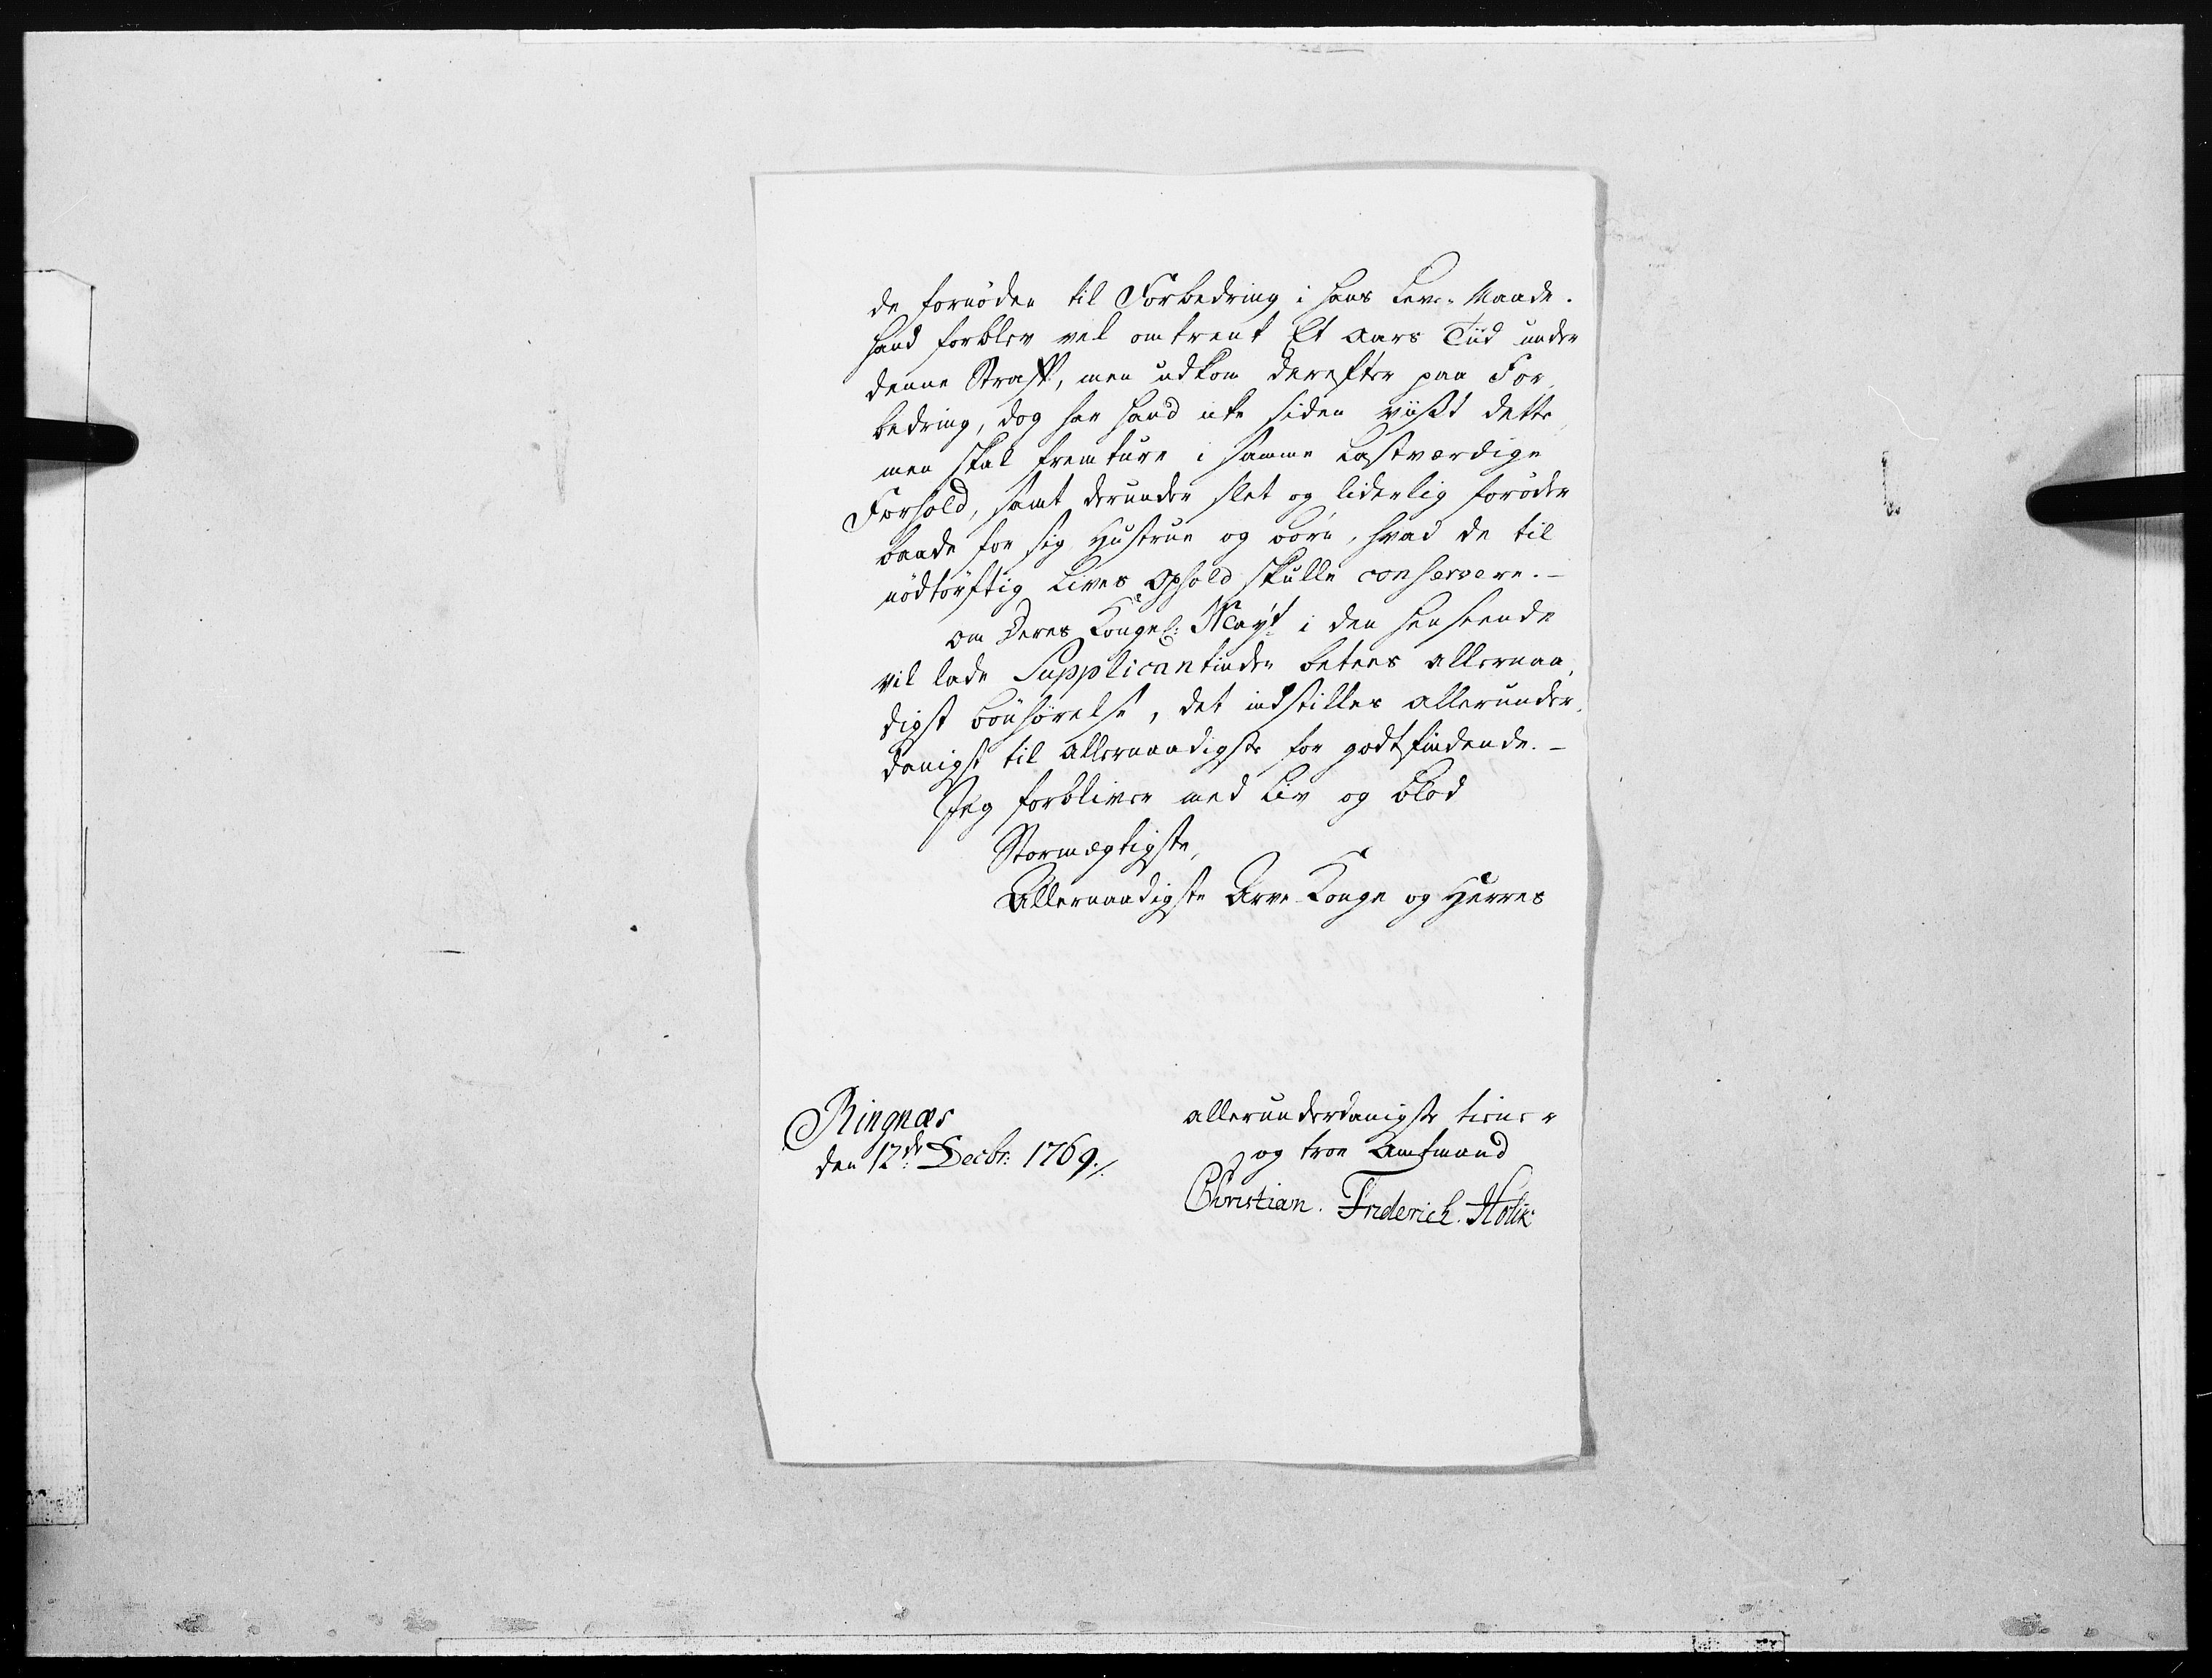 de fornøden til Forbedring i hans Leve-Maade.
Hand forblev vel omtrent Et Aars Tiid under
denne Straff, men udkom derefter paa For,
bedring, dog har hand icke siden viist dette,
men skal fremture i samme Lastværdige
Forhold, samt derunder slet og liderlig forøder
baade for sig Hustrue og børn, hvad de til
nødtørftig Lives Ophold skulle conservere.-
Om Deres Kongel: May't i den henseende
vil lade Supplicantinden betees allernaa,
digst bønhørelse, det indstilles allerunder,
danigst til allernaadigste for godtfindende.-
Jeg forbliver med Liv og Blod
Stormægtigste,
Allernaadigste Arve-Konge og Herres
allerunderdanigste tiener
og troe Amtmand
Christian. Friderich. Holk
Ringnæs
den 12de Decbr: 1769./.